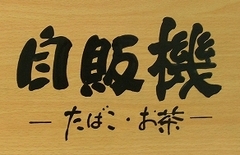 自販機
－たばこ・お茶－